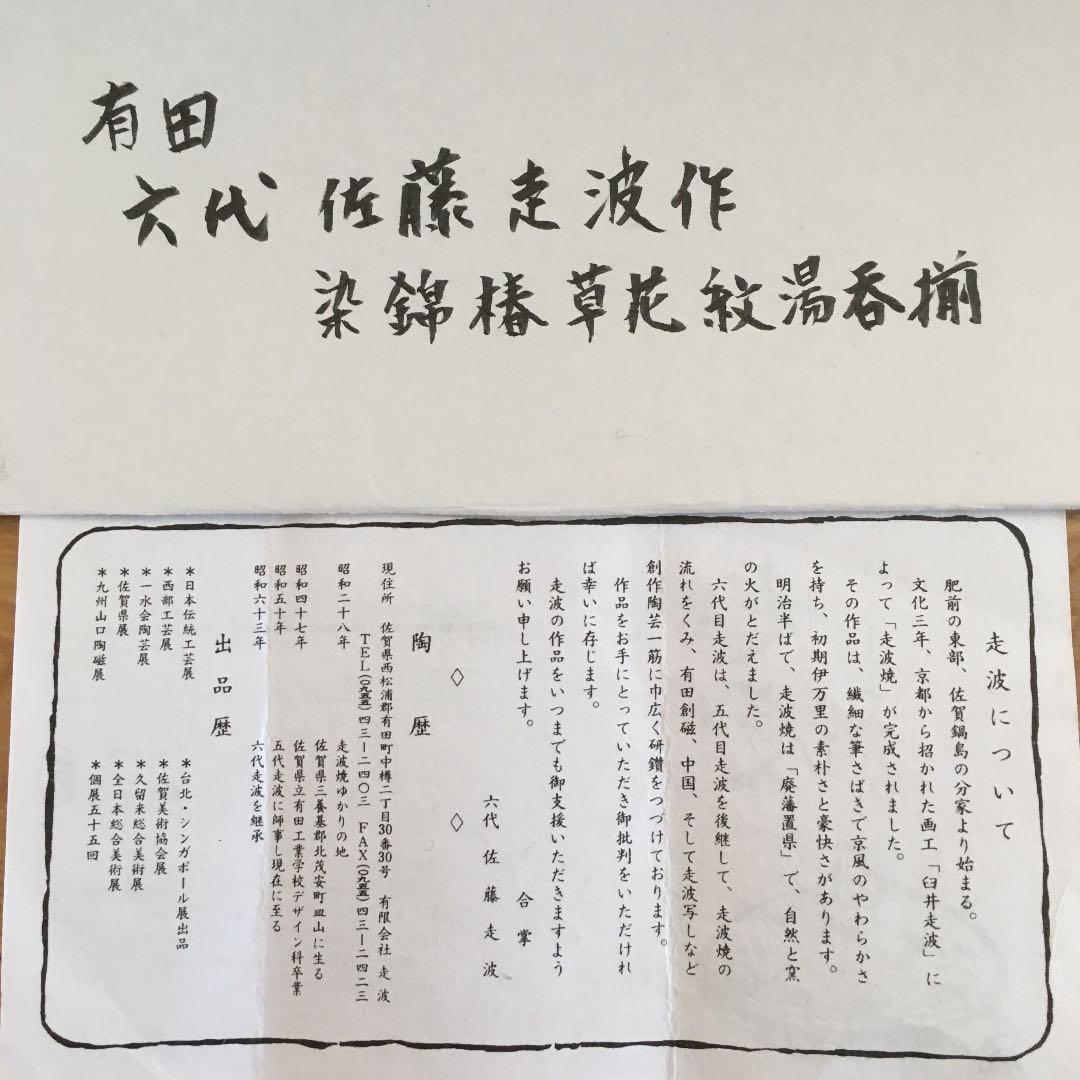 有田
六代 佐藤走波作
染錦椿草花紋湯呑揃
走波について
肥前の東部、佐賀鍋島の分家より始まる。
文化三年、京都から招かれた画工「臼井走波」に
よって「走波焼」が完成されました。
その作品は、繊細な筆さばきで京風のやわらかさ
を持ち、初期伊万里の素朴さと豪快さがあります。
明治半ばで、走波焼は「廃藩置県」で、自然と窯
の火がとだえました。
六代目走波は、五代目走波を後継して、走波焼の
流れをくみ、有田創磁、中国、そして走波写しなど
創作陶芸一筋に巾広く研鑽をつづけております。
作品をお手にとっていただき御批判をいただけれ
ば幸いに存じます。
走波の作品をいつまでも御支援いただきますよう
お願い申し上げます。 合掌
六代 佐藤走波
◇ ◇
陶歴
現住所 佐賀県西松浦郡有田町中樽二丁目30番30号 有限会社 走波
TEL(〇九五五)四三―二四〇三 FAX(〇九五五)四三―二四二三
昭和二十八年 走波焼ゆかりの地
佐賀県三養基郡北茂安町皿山に生る
昭和四十七年 佐賀県立有田工業学校デザイン科卒業
昭和五十年 五代走波に師事し現在に至る
昭和六十三年 六代走波を継承
出品歴
*日本伝統工芸展 *台北・シンガポール展出品
*西部工芸展 *佐賀美術協会展
*一水会陶芸展 *久留米総合美術展
*佐賀県展 *全日本総合美術展
*九州山口陶磁展 *個展五十五回